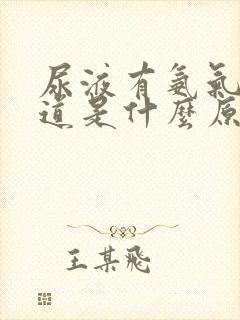 尿液有氨氣
道是什麼原
王某飛